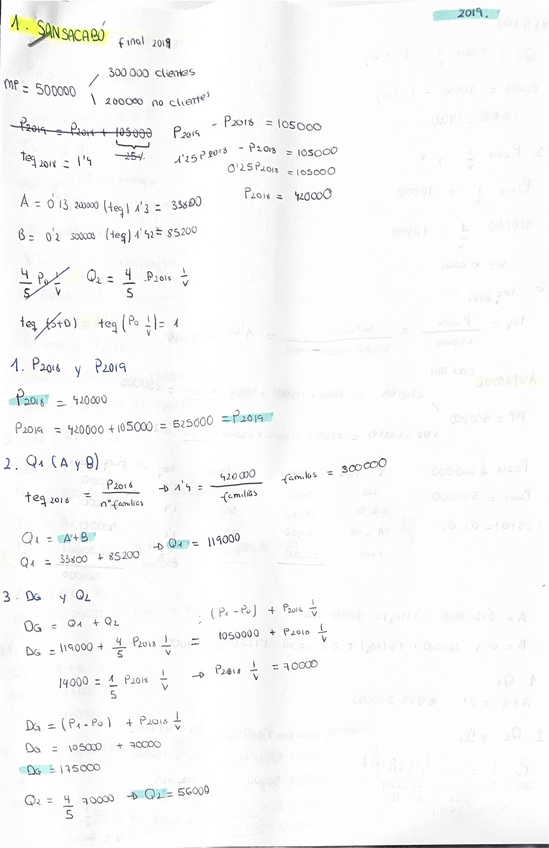 2019.
1. SANSACABÓ final 2019
MP = 500000 / 300 000 clientes
\ 200000 no clientes
P2019 = P2018 + 105000
25%
P2019 - P2018 = 105000
teq 2018 = 1'4
1'25P2018 - P2018 = 105000
0'25P2018 = 105000
P2018 = 420000
A = 0'13 200000 (teq) 1'3 = 33800
B = 0'2 300000 (teq) 1'42 = 85200
4/5 P0 1/v Q2 = 4/5 P2018 1/v
teq (S+D) = teq (P0 1/v) = 1
1. P2018 y P2019
P2018 = 420000
P2019 = 420000 + 105000 = 525000 = P2019
2. Q1 (A y B)
teq 2018 = P2018 / nº familias → 1'4 = 420000 / familias familias = 300000
Q1 = A+B
Q1 = 33800 + 85200 → Q1 = 119000
3. DG y Q2
DG = Q1 + Q2 ; (P1 - P0) + P2018 1/v
DG = 119000 + 4/5 P2018 1/v = 1050000 + P2018 1/v
14000 = 1/5 P2018 1/v → P2018 1/v = 70000
DG = (P1 - P0) + P2018 1/v
DG = 105000 + 70000
DG = 175000
Q2 = 4/5 70000 → Q2 = 56000